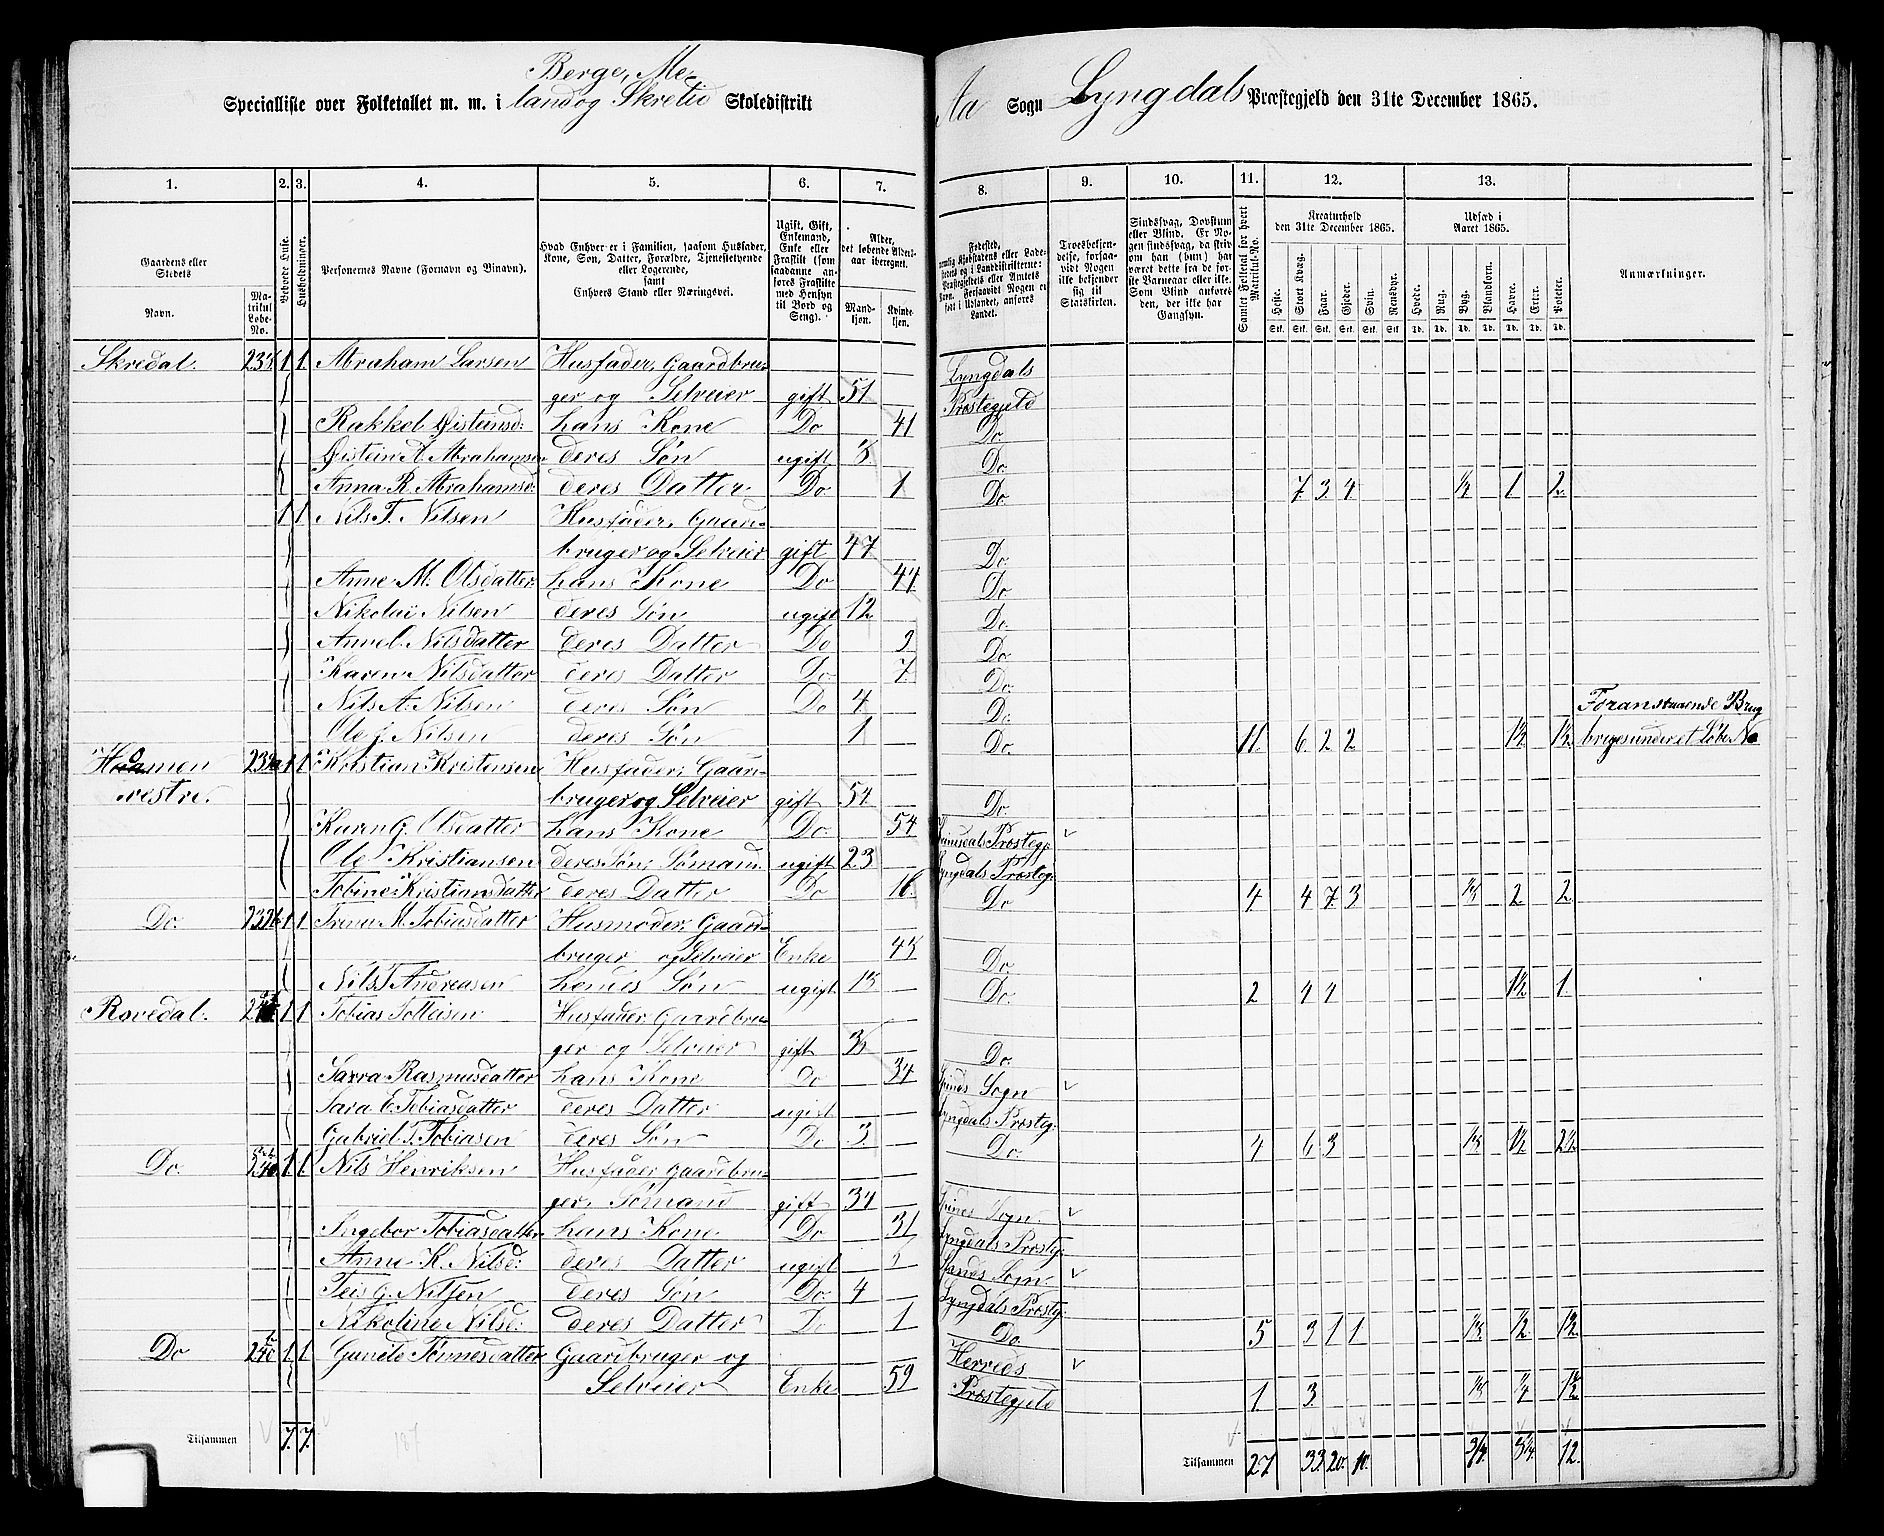 Berge, Me-
Specialliste over Folketallet m. m. i land og Skretid Skoledistrikt
Aa Sogn Lyngdals Præstegjeld den 31te December 1865.
1. 2. 3. 4. 5. 6. 7. 8. 9. 10. 11. 12. 13.
Gaardens eller Stedets
Navn.
Matrikul Løbe-No.
Beboede Huse.
Husholdninger.
Personernes Navne (Fornavn og Tilnavn).
Hvad Enhver er i Familien, saasom Husfader, Kone, Søn, Datter, Forældre, Tjenestetyende eller Logerende, samt Enhvers Stand eller Næringsvei.
Ugift, Gift, Enkemand, Enke eller Fraskilt (som saadanne anføres Fraskilte med Hensyn til Bord og Seng).
Alder, det løbende Aldersaar iberegnet.
Mandkjøn. Kvindekjøn.
Troesbekjendelse, forsaavidt Nogen ikke bekjender sig til Statskirken.
Samlet Folketal for hvert Matrikul-No.
Kreaturhold den 31te December 1865.
Heste. Stort Kvæg. Faar. Gjeder. Svin. Rensdyr.
Udsæd i Aaret 1865.
Hvede. Rug. Byg. Blandkorn. Havre. Erter. Poteter.
Anmærkninger.
Skredal. 1 1 Abraham Larsen Husfader, Gaardbru- Lyngdals
ger og Selveier gift 51 Præstegjeld
Rakkel Øistensd: hans Kone Do 41 Do
Øistein A. Abrahamsen deres Søn ugift 3 Do
Anna R. Abrahamsd: deres Datter Do 1 Do 7 3 4 1 2
1 1 Nils T. Nilsen Husfader, Gaard-
bruger og Selveier gift 47 Do
Anne M. Olsdatter hans Kone Do 44 Do
Nikolai Nilsen deres Søn ugift 12 Do
Nilsdatter deres Datter Do Do
Karen Nilsdatter deres Datter Do 7 Do
Nils A. Nilsen deres Søn Do 4 Do Foranstaaende Brug
Ole J. Nilsen deres Søn 1 Do 11 6 2 2 1½ 1½ bruges under et Løbe No
1 1 Kristian Kristensen Husfader, Gaard-
vestre. bruger og Selveier gift 54 Do
Karen G. Olsdatter hans Kone Do 54 Præstegj
Ole Kristiansen deres Søn, Sømand ugift 23 Lyngdals Præsteg:
Tobine Kristiansdatter deres Datter Do 16 Do 4 4 7 3 2 2
Do. 1 1 M. Tobiasdatter Husmoder, Gaard-
bruger og Selveier Enke Do
Nils T. Andreasen hendes Søn ugift Do 2 4 4 1½ 1
Rovedal. 1 1 Tobias Husfader, Gaardbru-
ger og Selveier gift Do.
Sara Rasmusdatter hans Kone Do 34 Sogn
Sara E. Tobiasdatter deres Datter ugift Lyngdals Præsteg:
Gabriel T. Tobiasen deres Søn Do 3 Do. 4 6 3 1½ 2½
Do. 1 1 Nils Henriksen Husfader, Gaardbru-
ger, Sømand gift 34 Sogn
Ingebor Tobiasdatter hans Kone Do 31 Lyngdals Præsteg:
Anne K. Nilsd: deres Datter ugift Sogn
Teis G. Nilsen deres Søn Do 4 Lyngdals Præsteg:
Nikoline Nilsd: deres Datter Do 1 Do. 5 3 1 1 1½ 1½
Do 240 1 1 Gunild Tønnesdatter Gaardbruger og Herreds
Selveier Enke 59 Præstegjeld 1 3 ¼ 1½
Tilsammen 7. 7. 187
Tilsammen 27 33 20 10 12